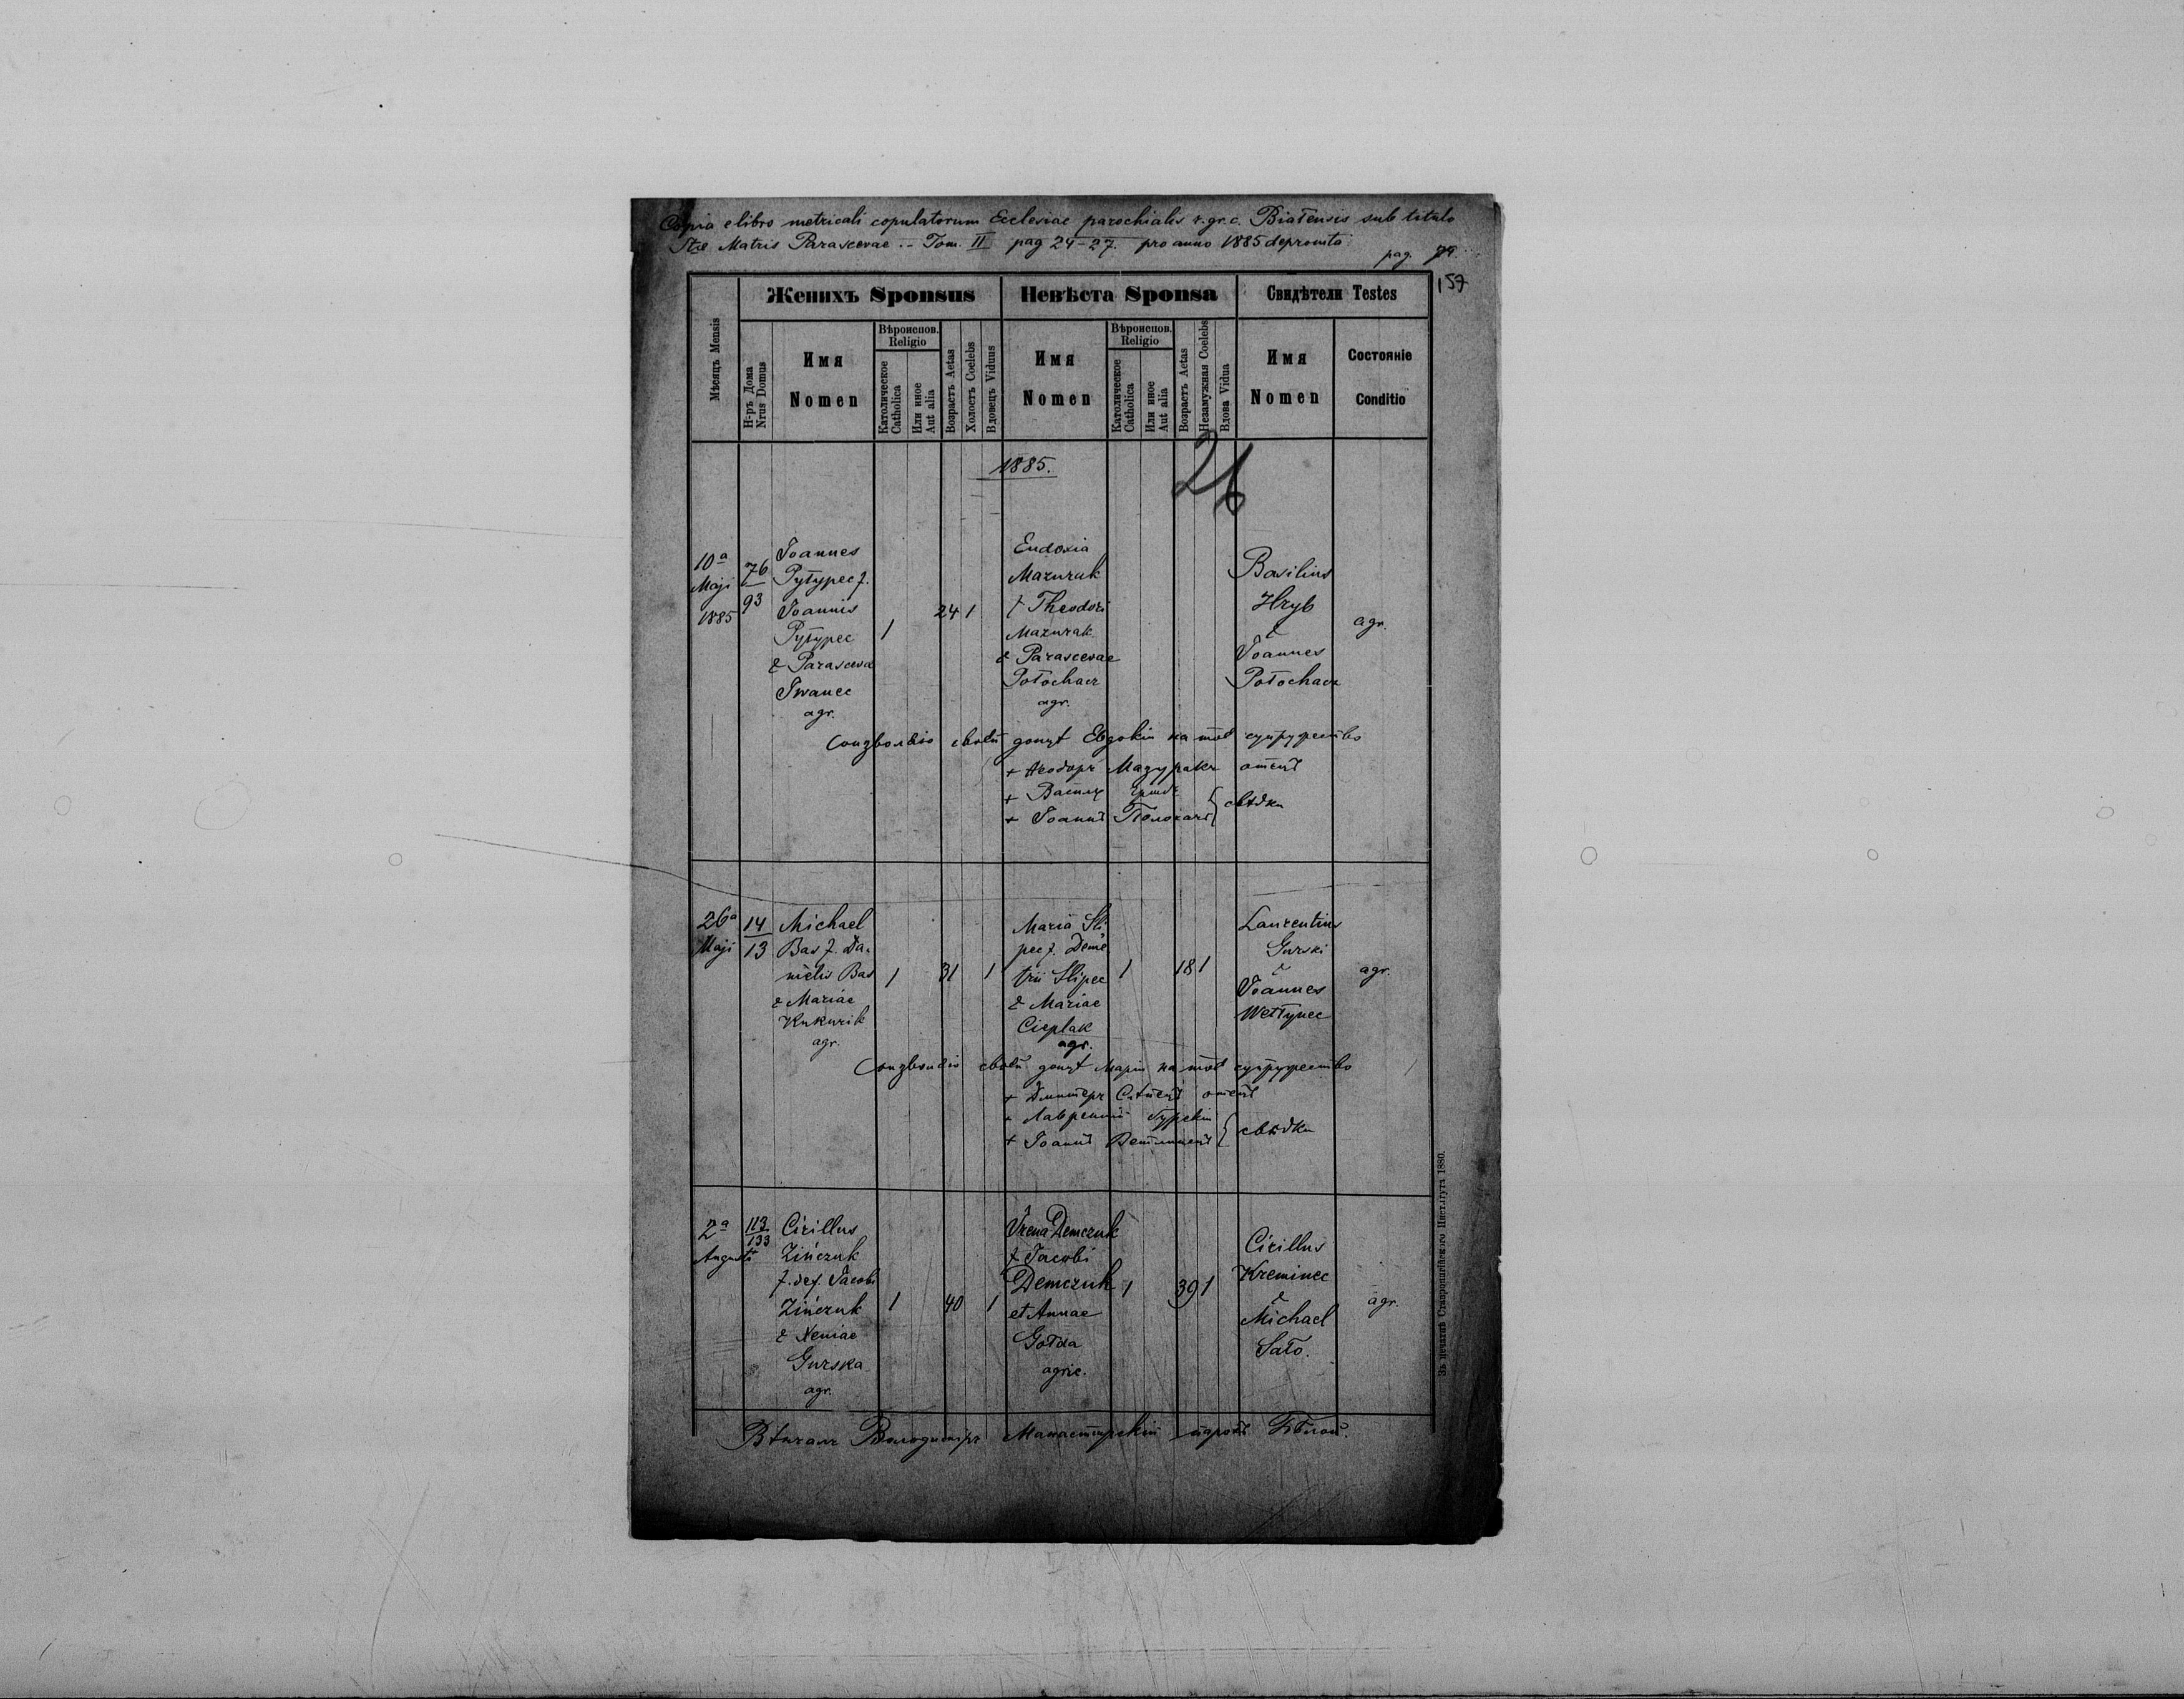 Copia e libro metricali copulatorum Ecclesiae parochialis r. gr. c. Białensis sub titulo
Stae Matris Parascevae .. Tom. II pag 24-27. pro anno 1885 depromta
pag.
157
Мѣсяцъ Mensis
Женихъ Sponsus
Невѣста Sponsa
Свидѣтели Testes
Н-ръ Дома Nrus Domus
Имя Nomen
Вѣроиспов. Religio
Католическое Catholica
Или иное Aut alia
Возрастъ Aetas
Холостъ Coelebs
Вдовецъ Viduus
Имя Nomen
Вѣроиспов. Religio
Католическое Catholica
Или иное Aut alia
Возрастъ Aetas
Незамужная Coelebs
Вдова Vidua
Имя Nomen
Состояніе Conditio
1885.
26
10a
Maji
1885
76
93
Joannes
Pyłypec f.
Joannis
Pyłypec
& Parascevae
Iwanec
agr.
1
24 1
Eudoxia
Mazurak
f Theodori
Mazurak
& Parascevae
Połochacz
agr.
Basilius
Hryb
&
Joannes
Połochacz
agr.
Соизволяю своей доцѣ Евдокіи на тое супружество
+ Ѳеодоръ Мазуракъ отецъ
+ Василь
+ Іоаннъ Полохачъ
свѣдки
26a
Maji
14
13
Michael
Bas f. Da-
nielis Bas
& Mariae
Kukurik
agr.
1
31
1
Maria Sli-
pec f. Deme
trii Slipec
& Mariae
Cieplak
agr.
1
18 1
Laurentius
Gurski
&
Joannes
Wetłynec
agr.
Соизволяю своей доцѣ Маріи на тое супружество
+ Дмитеръ Слѣпецъ отецъ
+ Лаврентій Гурскій
+ Іоаннъ Ветлинецъ
свѣдки
2a
Augusti
113
133
Cirillus
Zińczuk
f. def. Jacobi
Zińczuk
& Xeniae
Gurska
agr.
1
40
1
Irena Demczuk
f Jacobi
Demczuk
et Annae
Gołda
agric.
1
39 1
Cirillus
Kreminec
&
Michael
Sało.
agr.
Вѣнчалъ Володимиръ Манастирскій парохъ Бѣлой.
Зъ печатнѣ Ставропигійского Института 1880.